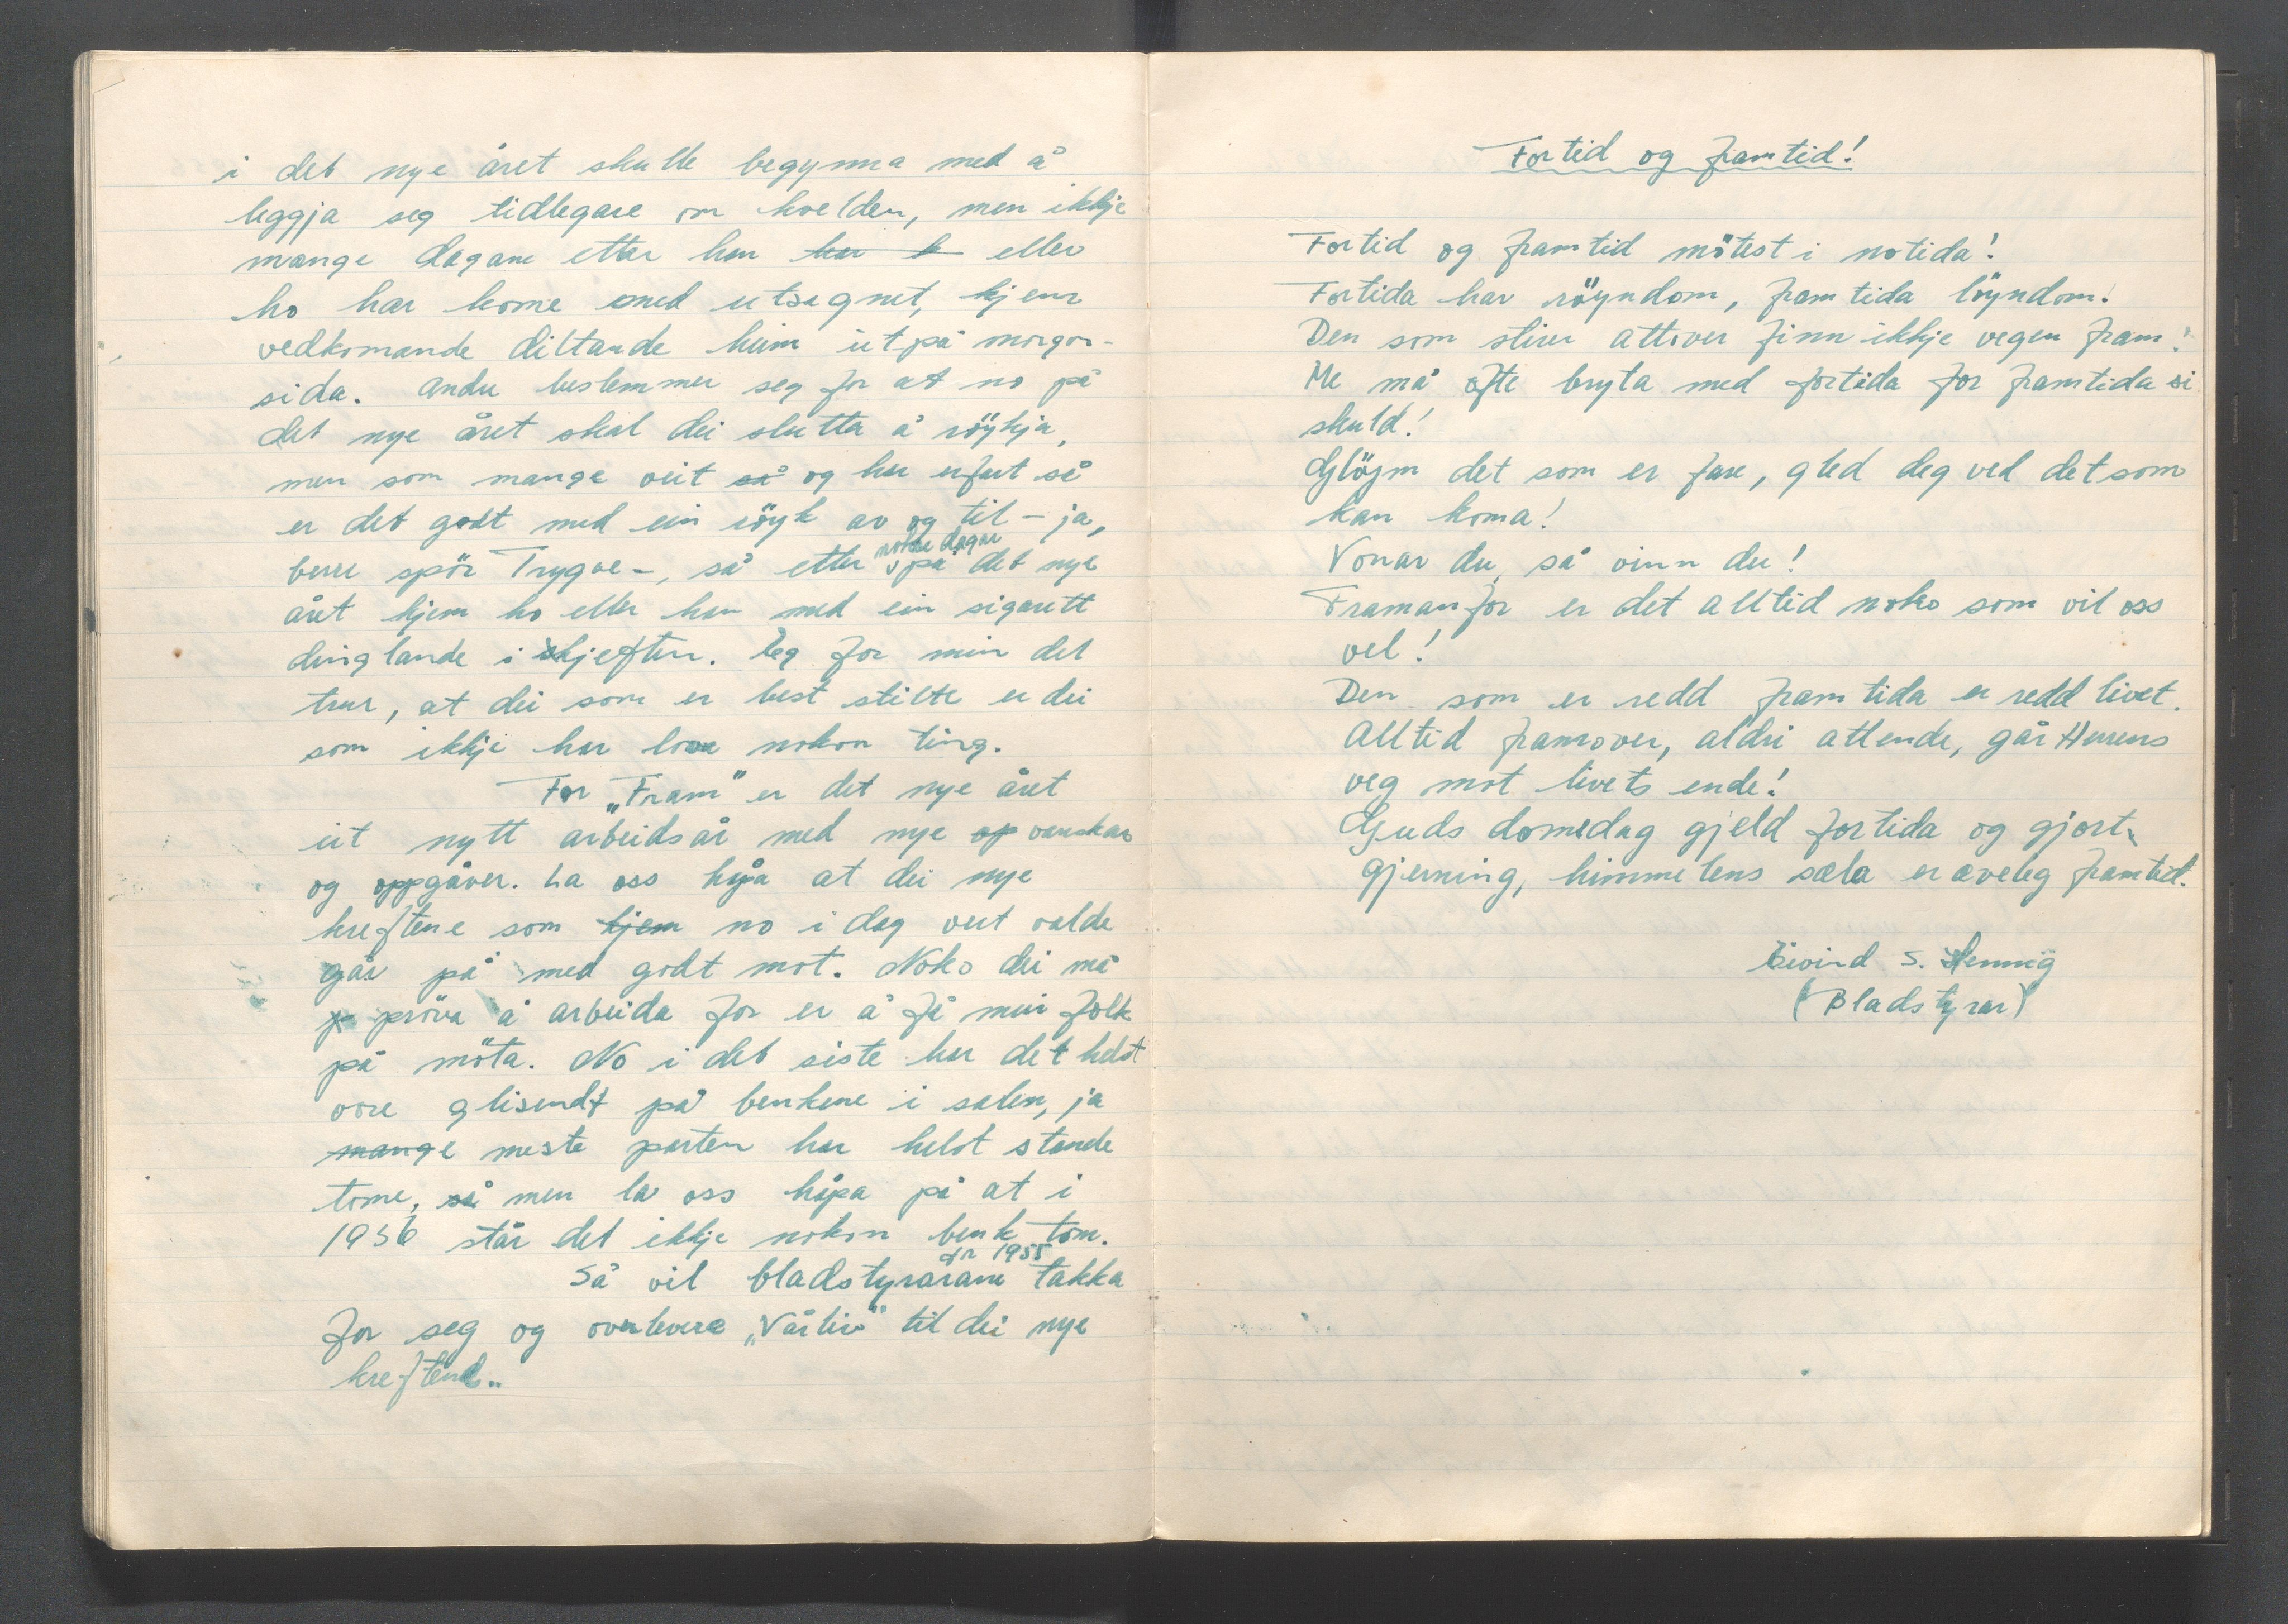 i det nye året skulle begynna med å
leggja seg tidlegare om kvelden, men ikkje
mange dagane etter han eller
ho har kome med utsegnet, kjem
vedkomande diltande heim ut på morgon-
sida. Andre bestemmer seg for at no på
det nye året skal dei slutta å röykja,
men som mange veit så og har erfart så
er det godt med ein röyk av og til – ja,
berre spör Trygve –, så etter nokre dagar på det nye
året kjem ho eller han med ein sigarett
dinglande i kjeften. Eg for min del
trur, at dei som er best stilte er dei
som ikkje har lova nokon ting.
For „Fram" er det nye året
eit nytt arbeidsår med nye op vanskar
og oppgåver. La oss håpa at dei nye
kreftene som kjem no i dag vert valde
går på med godt mot. Noko dei må
pröva å arbeida for er å få meir folk
på möta. No i det siste har det helst
vore glisendt på benkene i salen, ja
mange meste parten har helst stande
tome, så men la oss håpa på at i
1956 står det ikkje nokon benk tom.
Så vil bladstyrarane for 1955 takka
for seg og overlevere „Vårliv" til dei nye
kreftene..
Fortid og framtid!
Fortid og framtid mötest i notida!
Fortida har röyndom, framtida löyndom!
Den som stirer attover finn ikkje vegen fram!
Me må ofte bryta med fortida for framtida si
skuld!
Glöym det som er fare, gled deg ved det som
kan koma!
Vonar du, så vinn du!
Framanfor er det alltid noko som vil oss
vel!
Den som er redd framtida er redd livet.
Alltid framover, aldri attende, går Herrens
veg mot livets ende!
Guds domedag gjeld fortida og gjort
gjerning, himmelens sæla er æveleg framtid.
Eivind S. Hennig
(Bladstyrar)